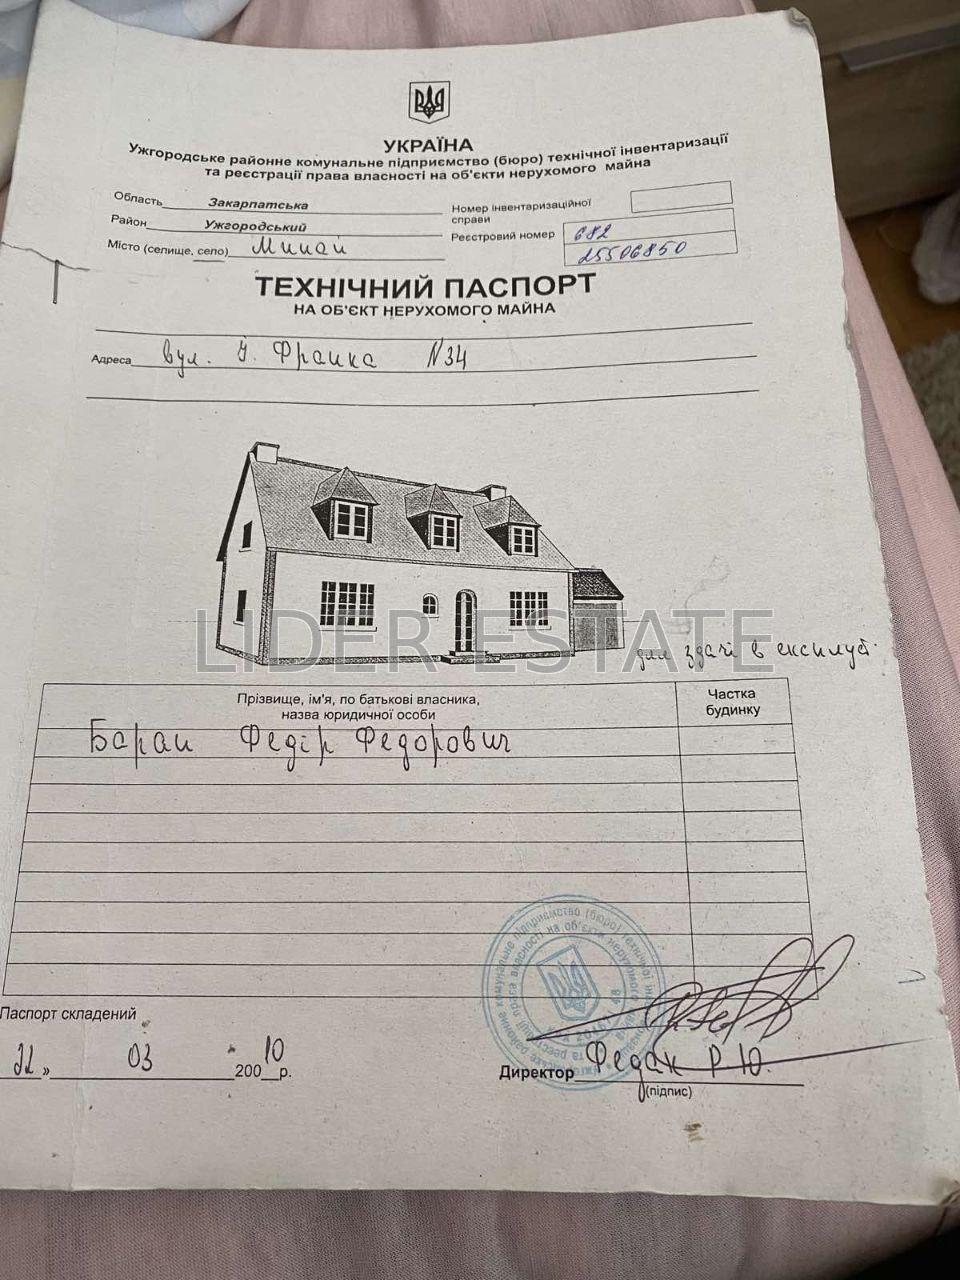 УКРАЇНА
Ужгородське районне комунальне підприємство (бюро) технічної інвентаризації
та реєстрації права власності на об'єкти нерухомого майна
Область Закарпатська
Номер інвентаризаційної справи
Район Ужгородський
Реєстровий номер 682
25506850
Місто (селище, село) Минай
ТЕХНІЧНИЙ ПАСПОРТ
НА ОБ'ЄКТ НЕРУХОМОГО МАЙНА
Адреса вул. І. Франка N34
LIDER ESTATE
для здачі в експлуат.
Прізвище, ім'я, по батькові власника,
назва юридичної особи
Частка
будинку
Баран Федір Федорович
Паспорт складений
» 03 200 10 р.
Директор Федак Р Ю.
(підпис)